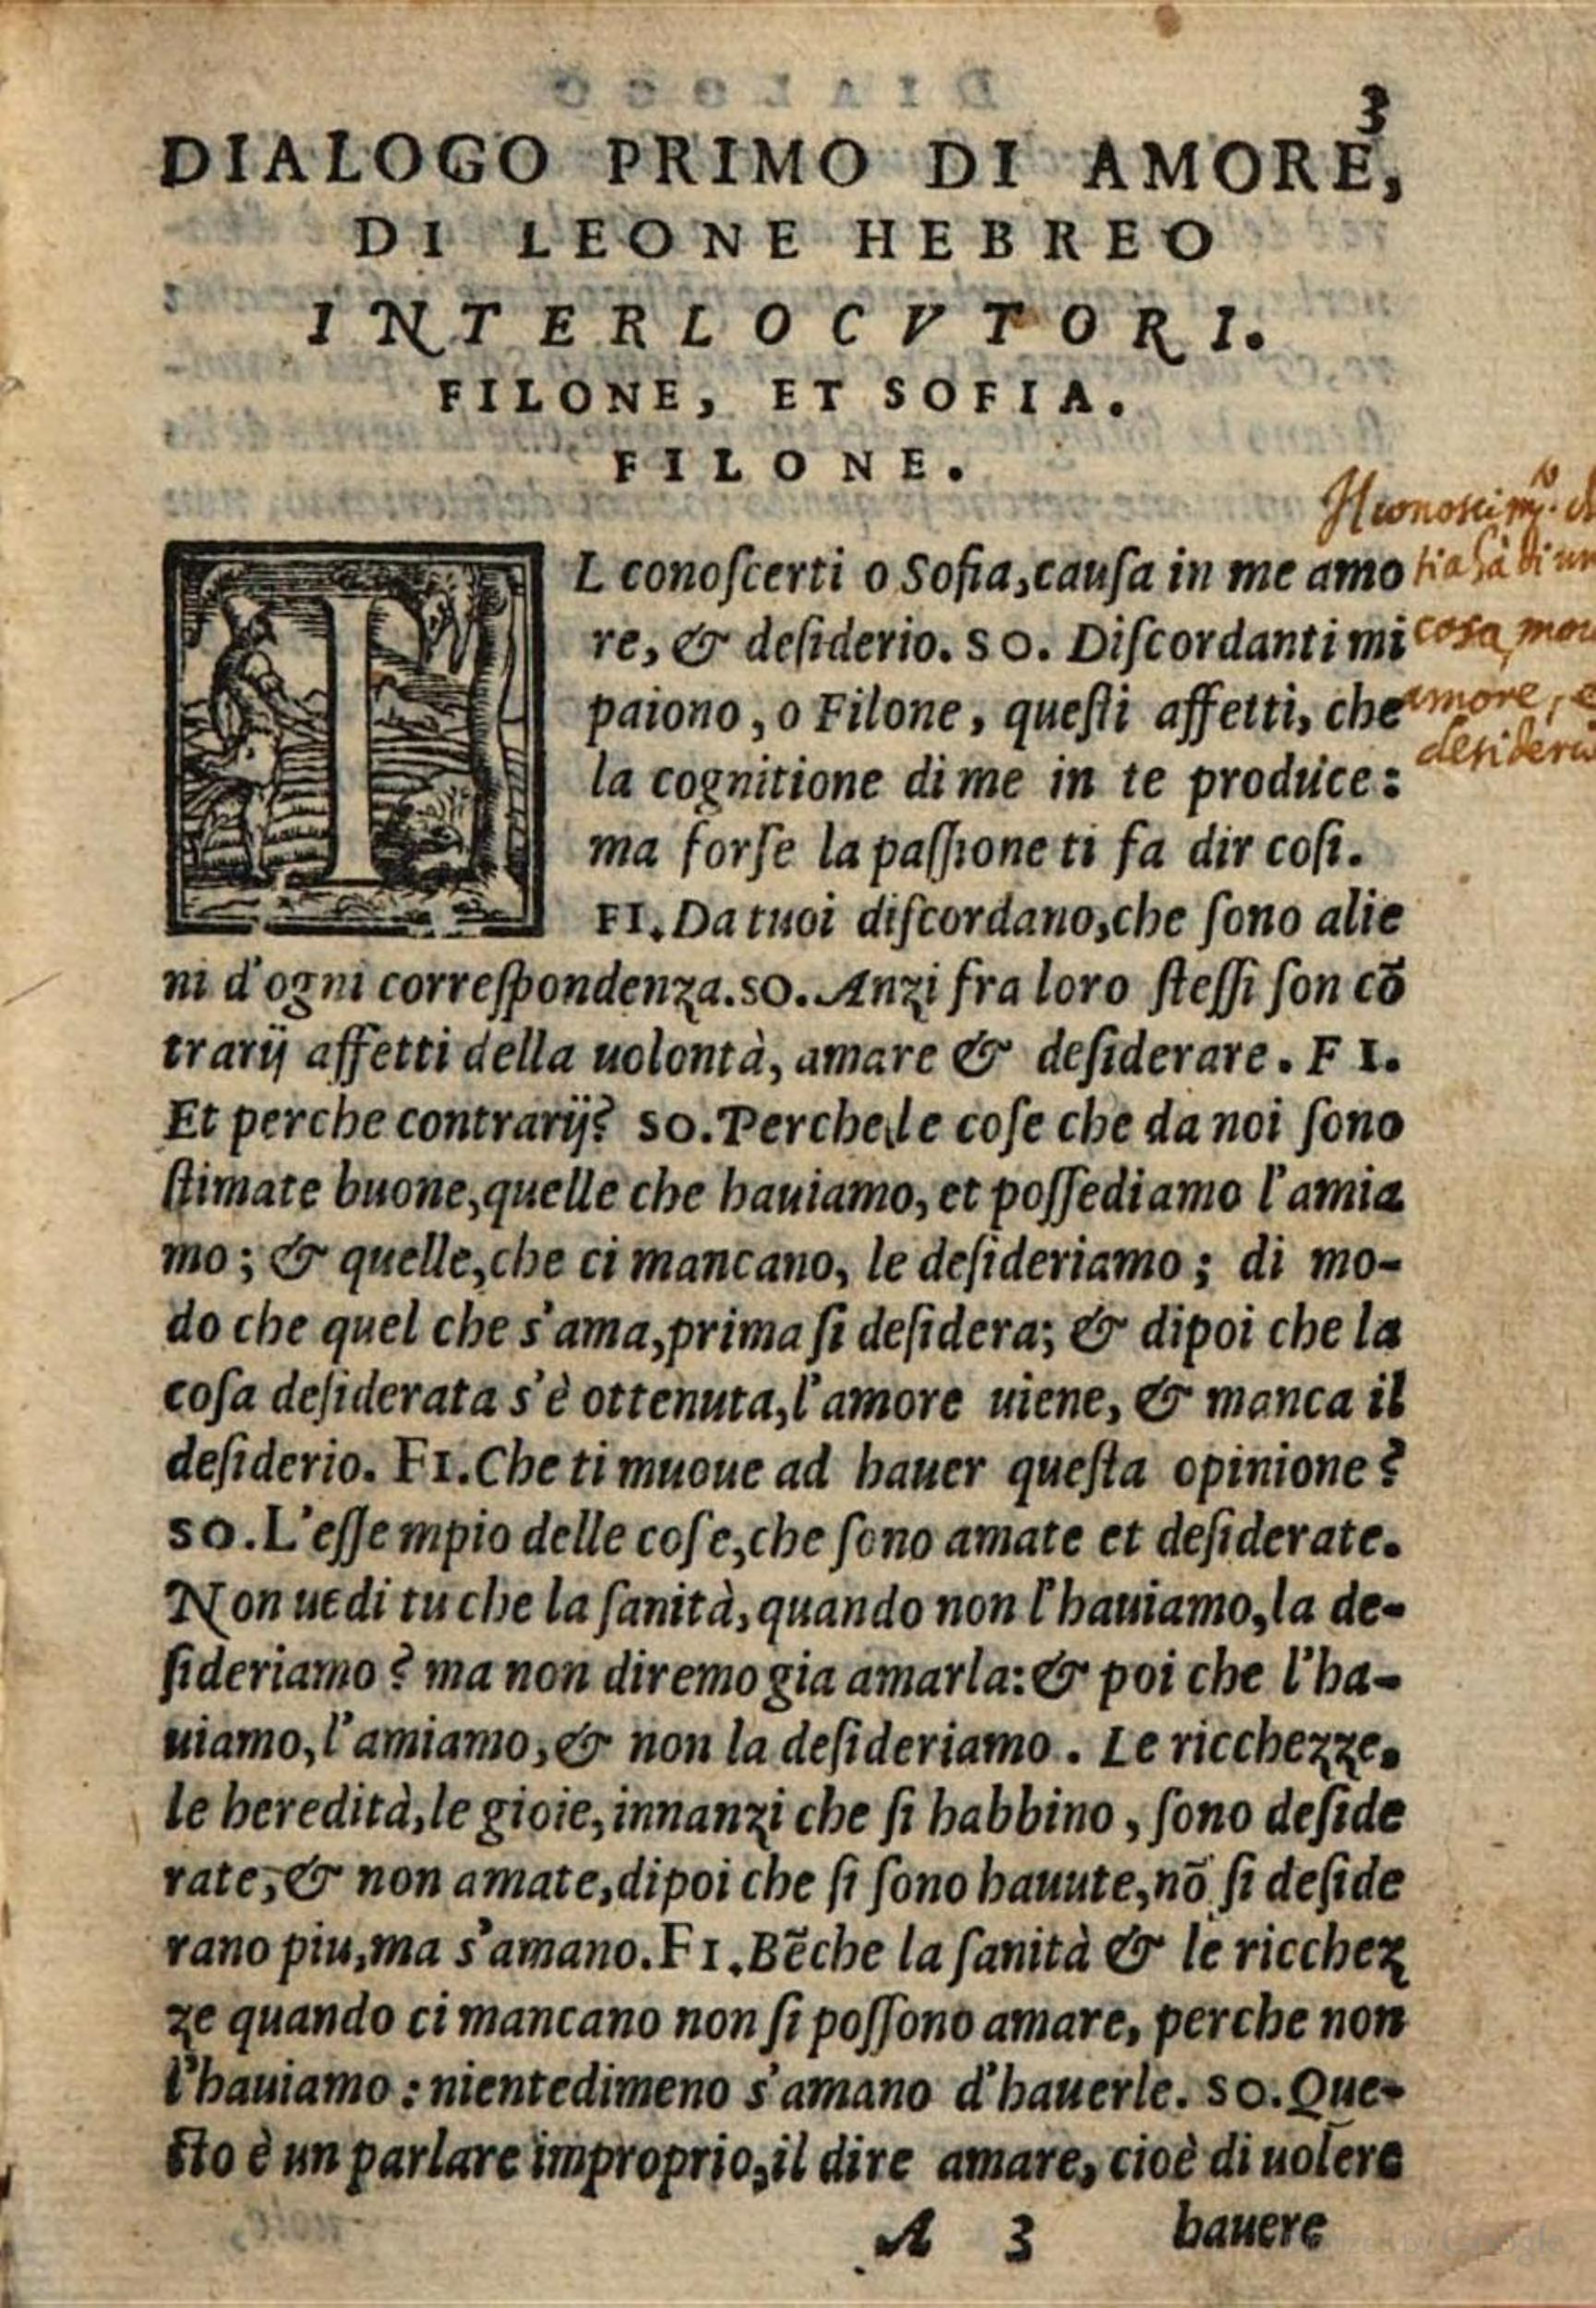 3
DIALOGO PRIMO DI AMORE,
DI LEONE HEBREO
INTERLOCVTORI.
FILONE, ET SOFIA.
FILONE.
IL conoſcerti o Sofia, cauſa in me amo
re, & deſiderio. SO. Diſcordanti mi
paiono, o Filone, queſti affetti, che
la cognitione di me in te produce:
ma forſe la paſſione ti fa dir coſi.
FI. Da tuoi diſcordano, che ſono alie
ni d'ogni correſpondenza. SO. Anzi fra loro ſteſſi ſon cō
trarij affetti della uolontà, amare & deſiderare. FI.
Et perche contrarij? SO. Perche le coſe che da noi ſono
ſtimate buone, quelle che hauiamo, et poſſediamo l'amia
mo; & quelle, che ci mancano, le deſideriamo; di mo-
do che quel che s'ama, prima ſi deſidera; & dipoi che la
coſa deſiderata s'è ottenuta, l'amore uiene, & manca il
deſiderio. FI. Che ti muoue ad hauer queſta opinione?
SO. L'eſſempio delle coſe, che ſono amate et deſiderate.
Non uedi tu che la ſanità, quando non l'hauiamo, la de-
ſideriamo? ma non diremo gia amarla: & poi che l'ha-
uiamo, l'amiamo, & non la deſideriamo. Le ricchezze,
le heredità, le gioie, innanzi che ſi habbino, ſono deſide
rate, & non amate, dipoi che ſi ſono hauute, nō ſi deſide
rano piu, ma s'amano. FI. Bēche la ſanità & le ricchez
ze quando ci mancano non ſi poſſono amare, perche non
l'hauiamo: nientedimeno s'amano d'hauerle. SO. Que-
ſto è un parlare improprio, il dire amare, cioè di uolere
A 3 hauere
cosa
amore,